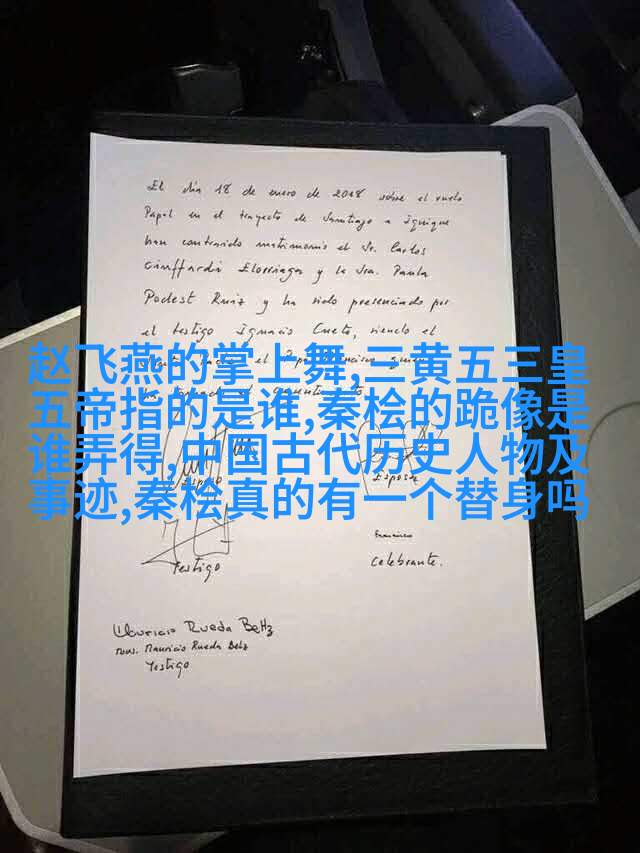 El día 18 de enero de 2018 sobre el vuelo
Papal en el trayecto de Santiago a Iquique
han contraido matrimonio el Sr. Carlos
Ciuffardi Elorriaga y la Sra. Paula
Podest Ruiz y ha sido presenciado por
el testigo Ignacio Cueto, siendo el
赵飞燕的掌上舞,三黄五三皇
五帝指的是谁,秦桧的跪像是
谁弄得,中国古代历史人物及
事迹,秦桧真的有一个替身吗
Esposo
Esposa
Testigo
Francisco
Celebrante.
Mauricio Rueda Beltz
Mons. Mauricio Rueda Beltz
Testigo